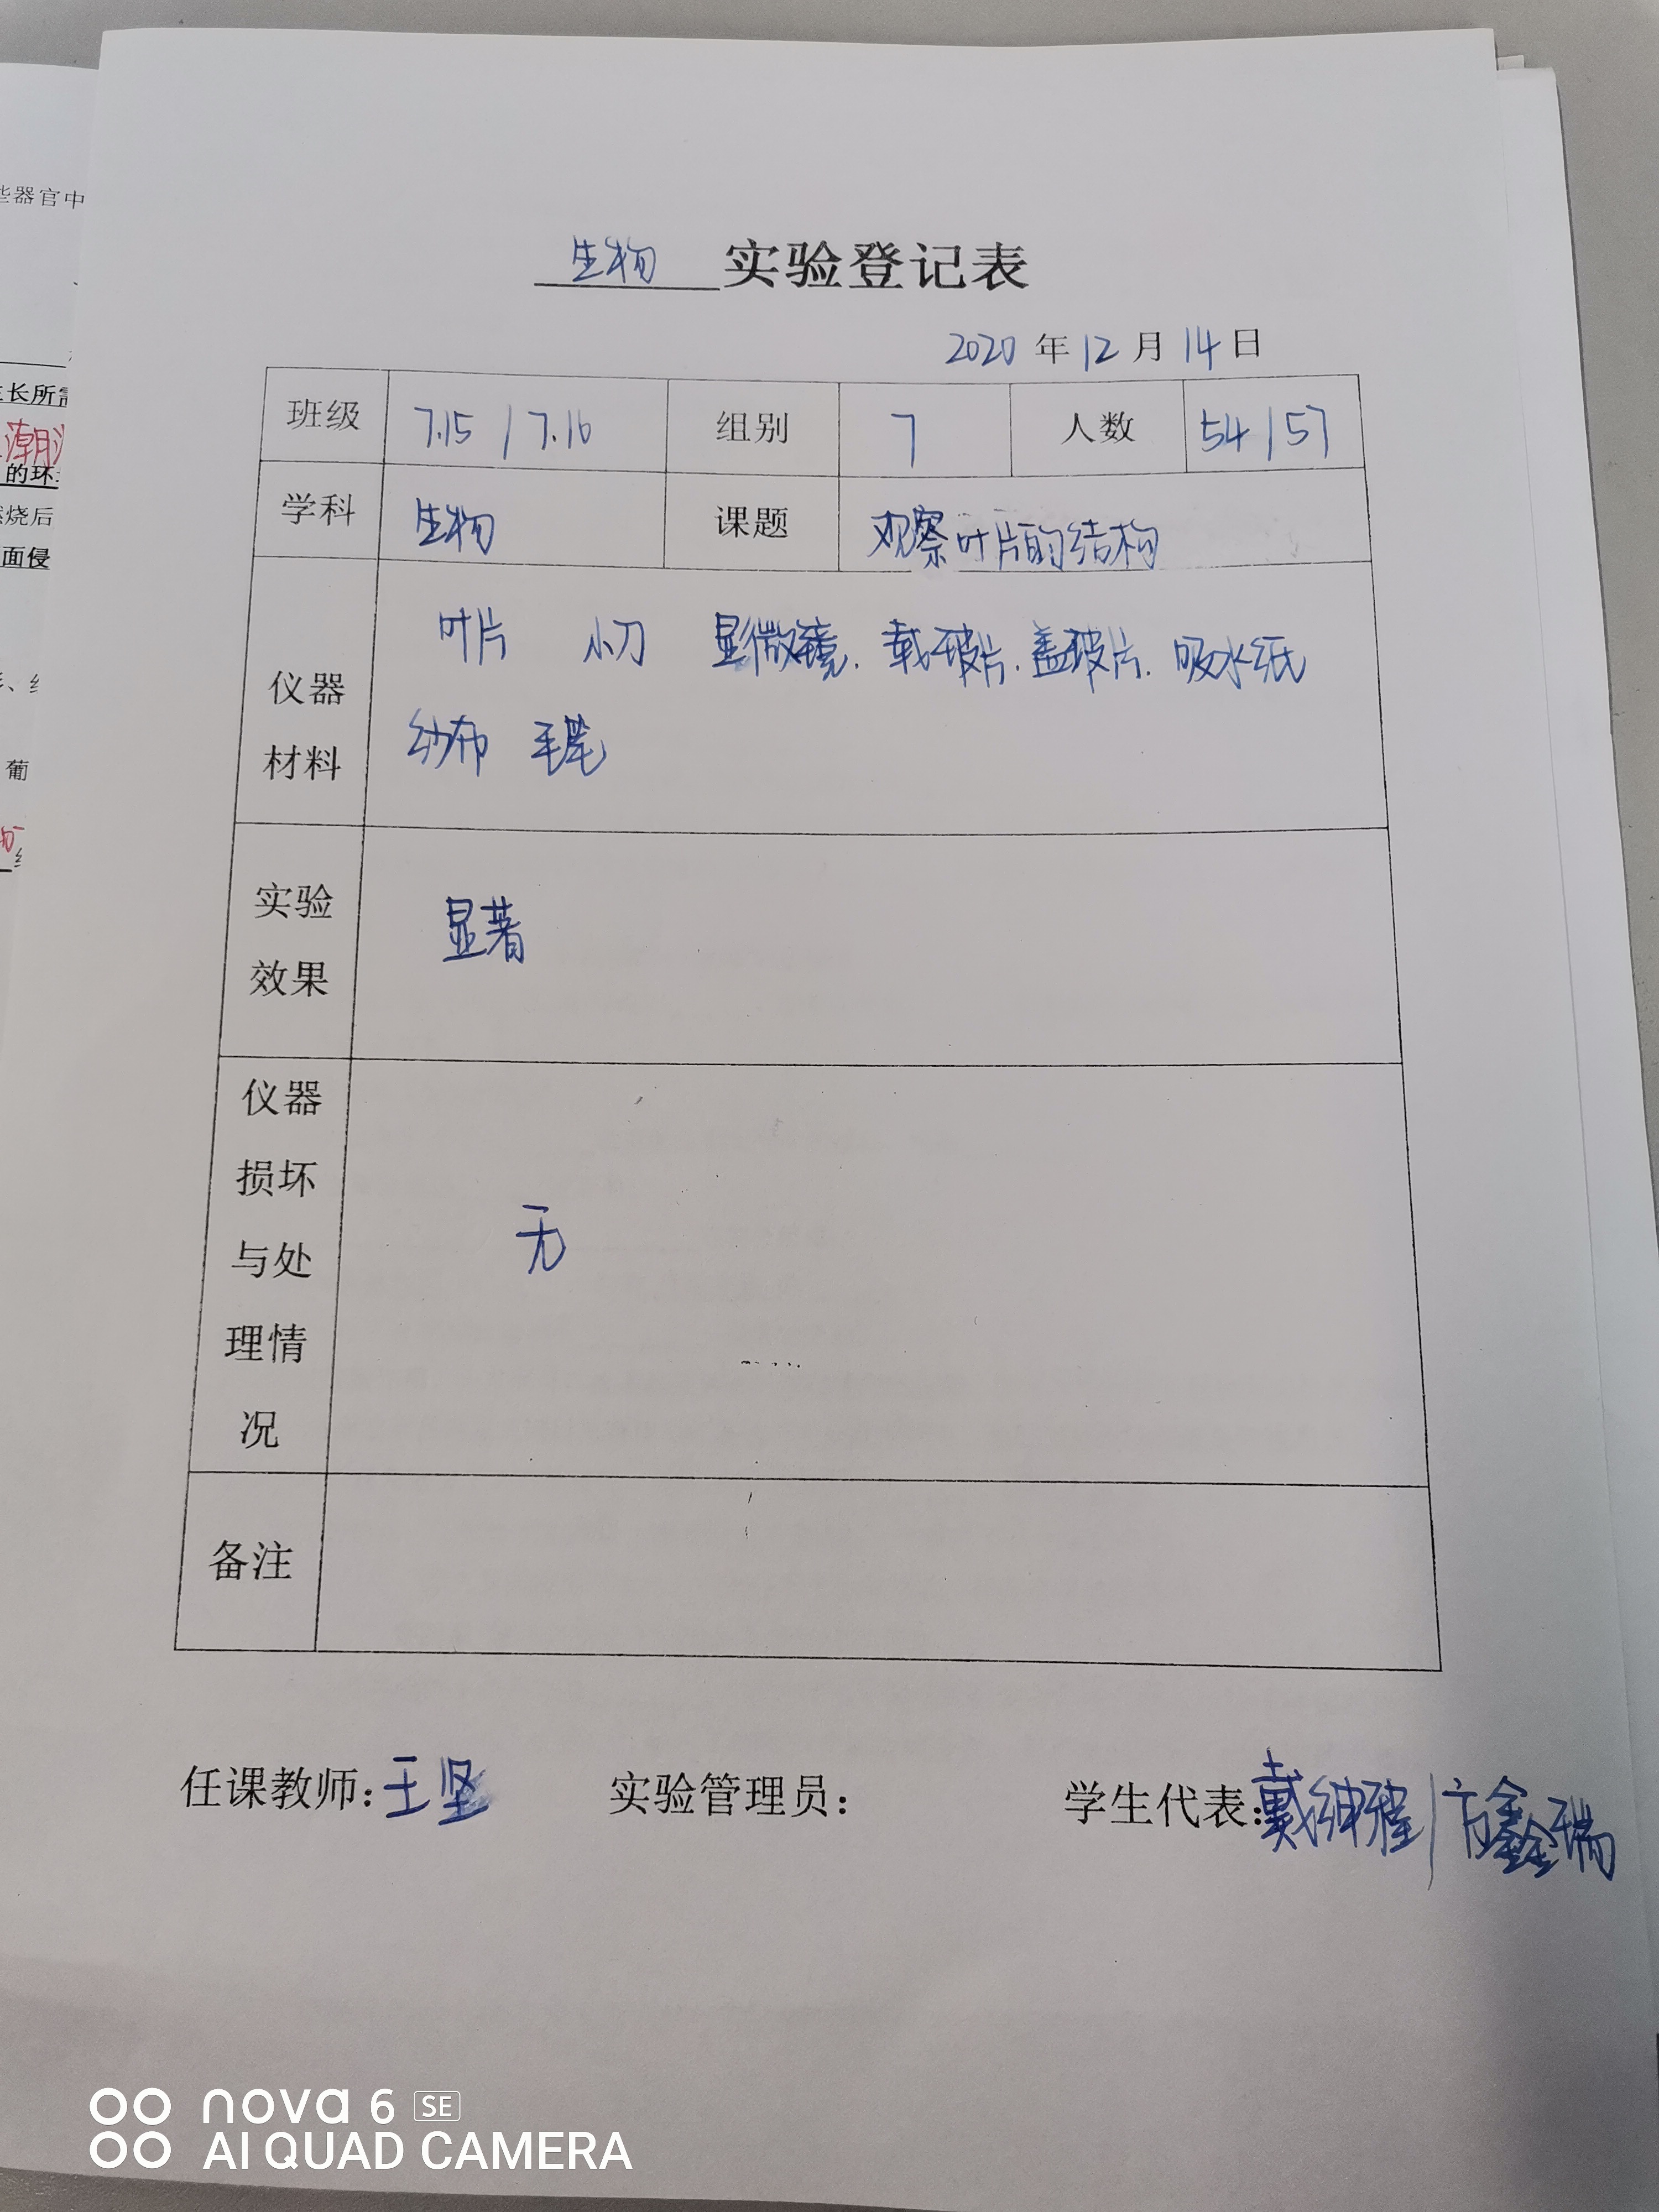 些器官中
生长所需
潮湿
的环
燃烧后
面侵
葡
生物 实验登记表
2020 年 12 月 14 日
班级 7.15 / 7.16 组别 7 人数 54 / 57
学科 生物 课题 观察叶片的结构
仪器材料 叶片 小刀 显微镜. 载玻片. 盖玻片. 吸水纸
纱布 毛笔
实验
效果
显著
仪器
损坏
与处
理情
况
无
备注
任课教师: 王坚 实验管理员: 学生代表: 戴绅程 / 方鑫瑞
nova 6 SE
AI QUAD CAMERA